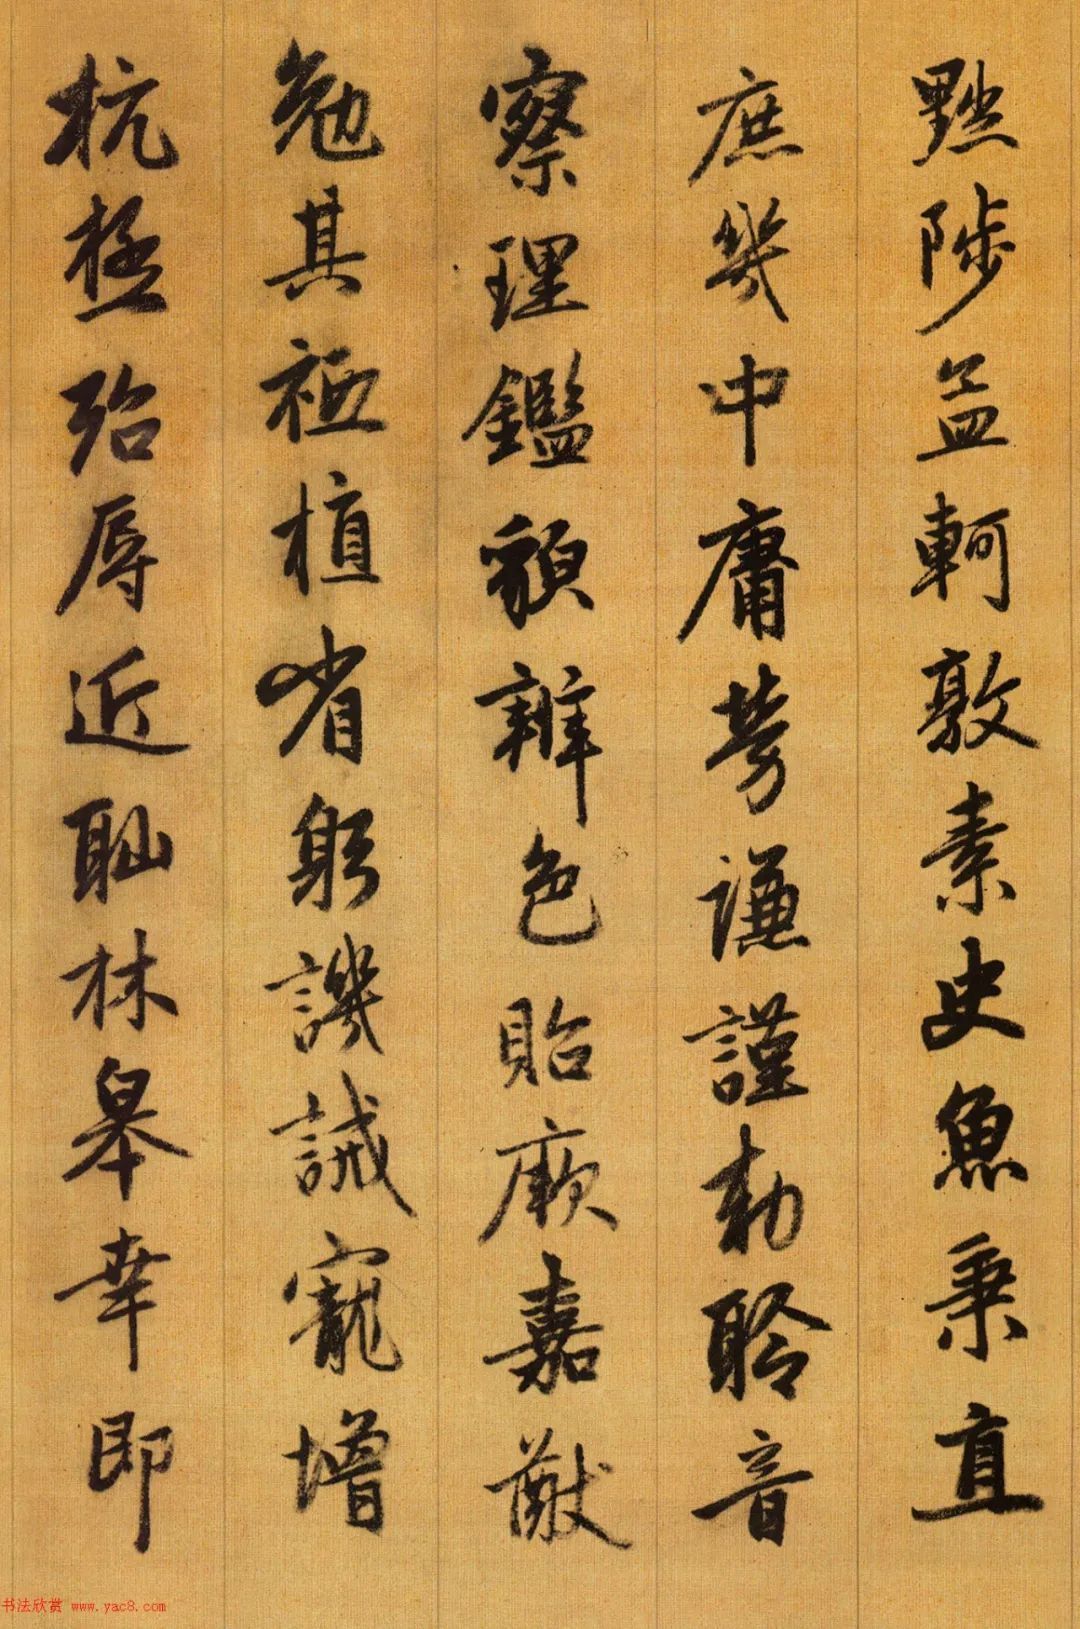 黜陟孟軻敦素史魚秉直
庶幾中庸勞謙謹勅聆音
察理鑑貌辯色貽厥嘉猷
勉其祗植省躬譏誡寵增
抗極殆辱近恥林皋幸即
书法欣赏 www.yac8.com